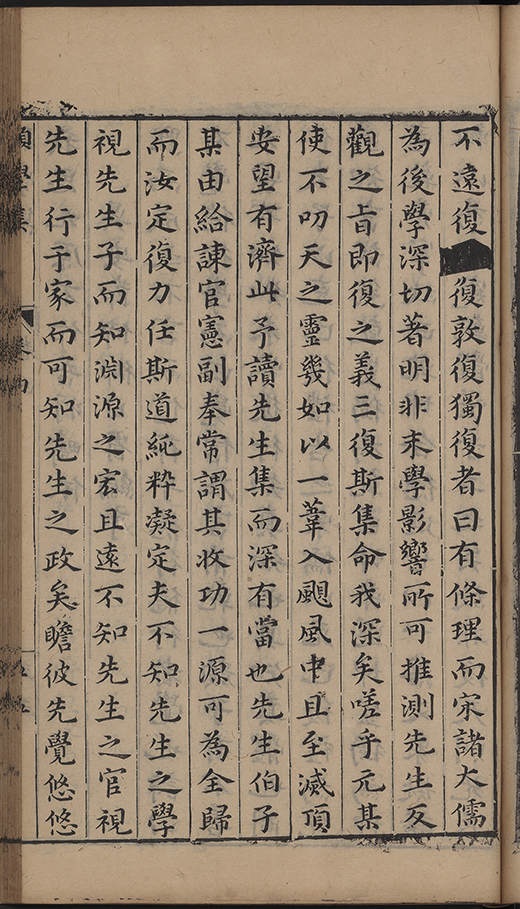 不遠復復敦復獨復者曰有條理而宋諸大儒
為後學深切著明非末學影響所可推測先生反
觀之旨即復之義三復斯集命我深矣嗟乎元某
使不叨天之靈幾如以一葦入颶風中且至滅頂
安望有濟此予讀先生集而深有當也先生伯子
某由給諫官憲副奉常謂其收功一源可為全歸
而汝定復力任斯道純粹凝定夫不知先生之學
視先生子而知淵源之宏且遠不知先生之官視
先生行于家而可知先生之政矣瞻彼先覺悠悠
學集